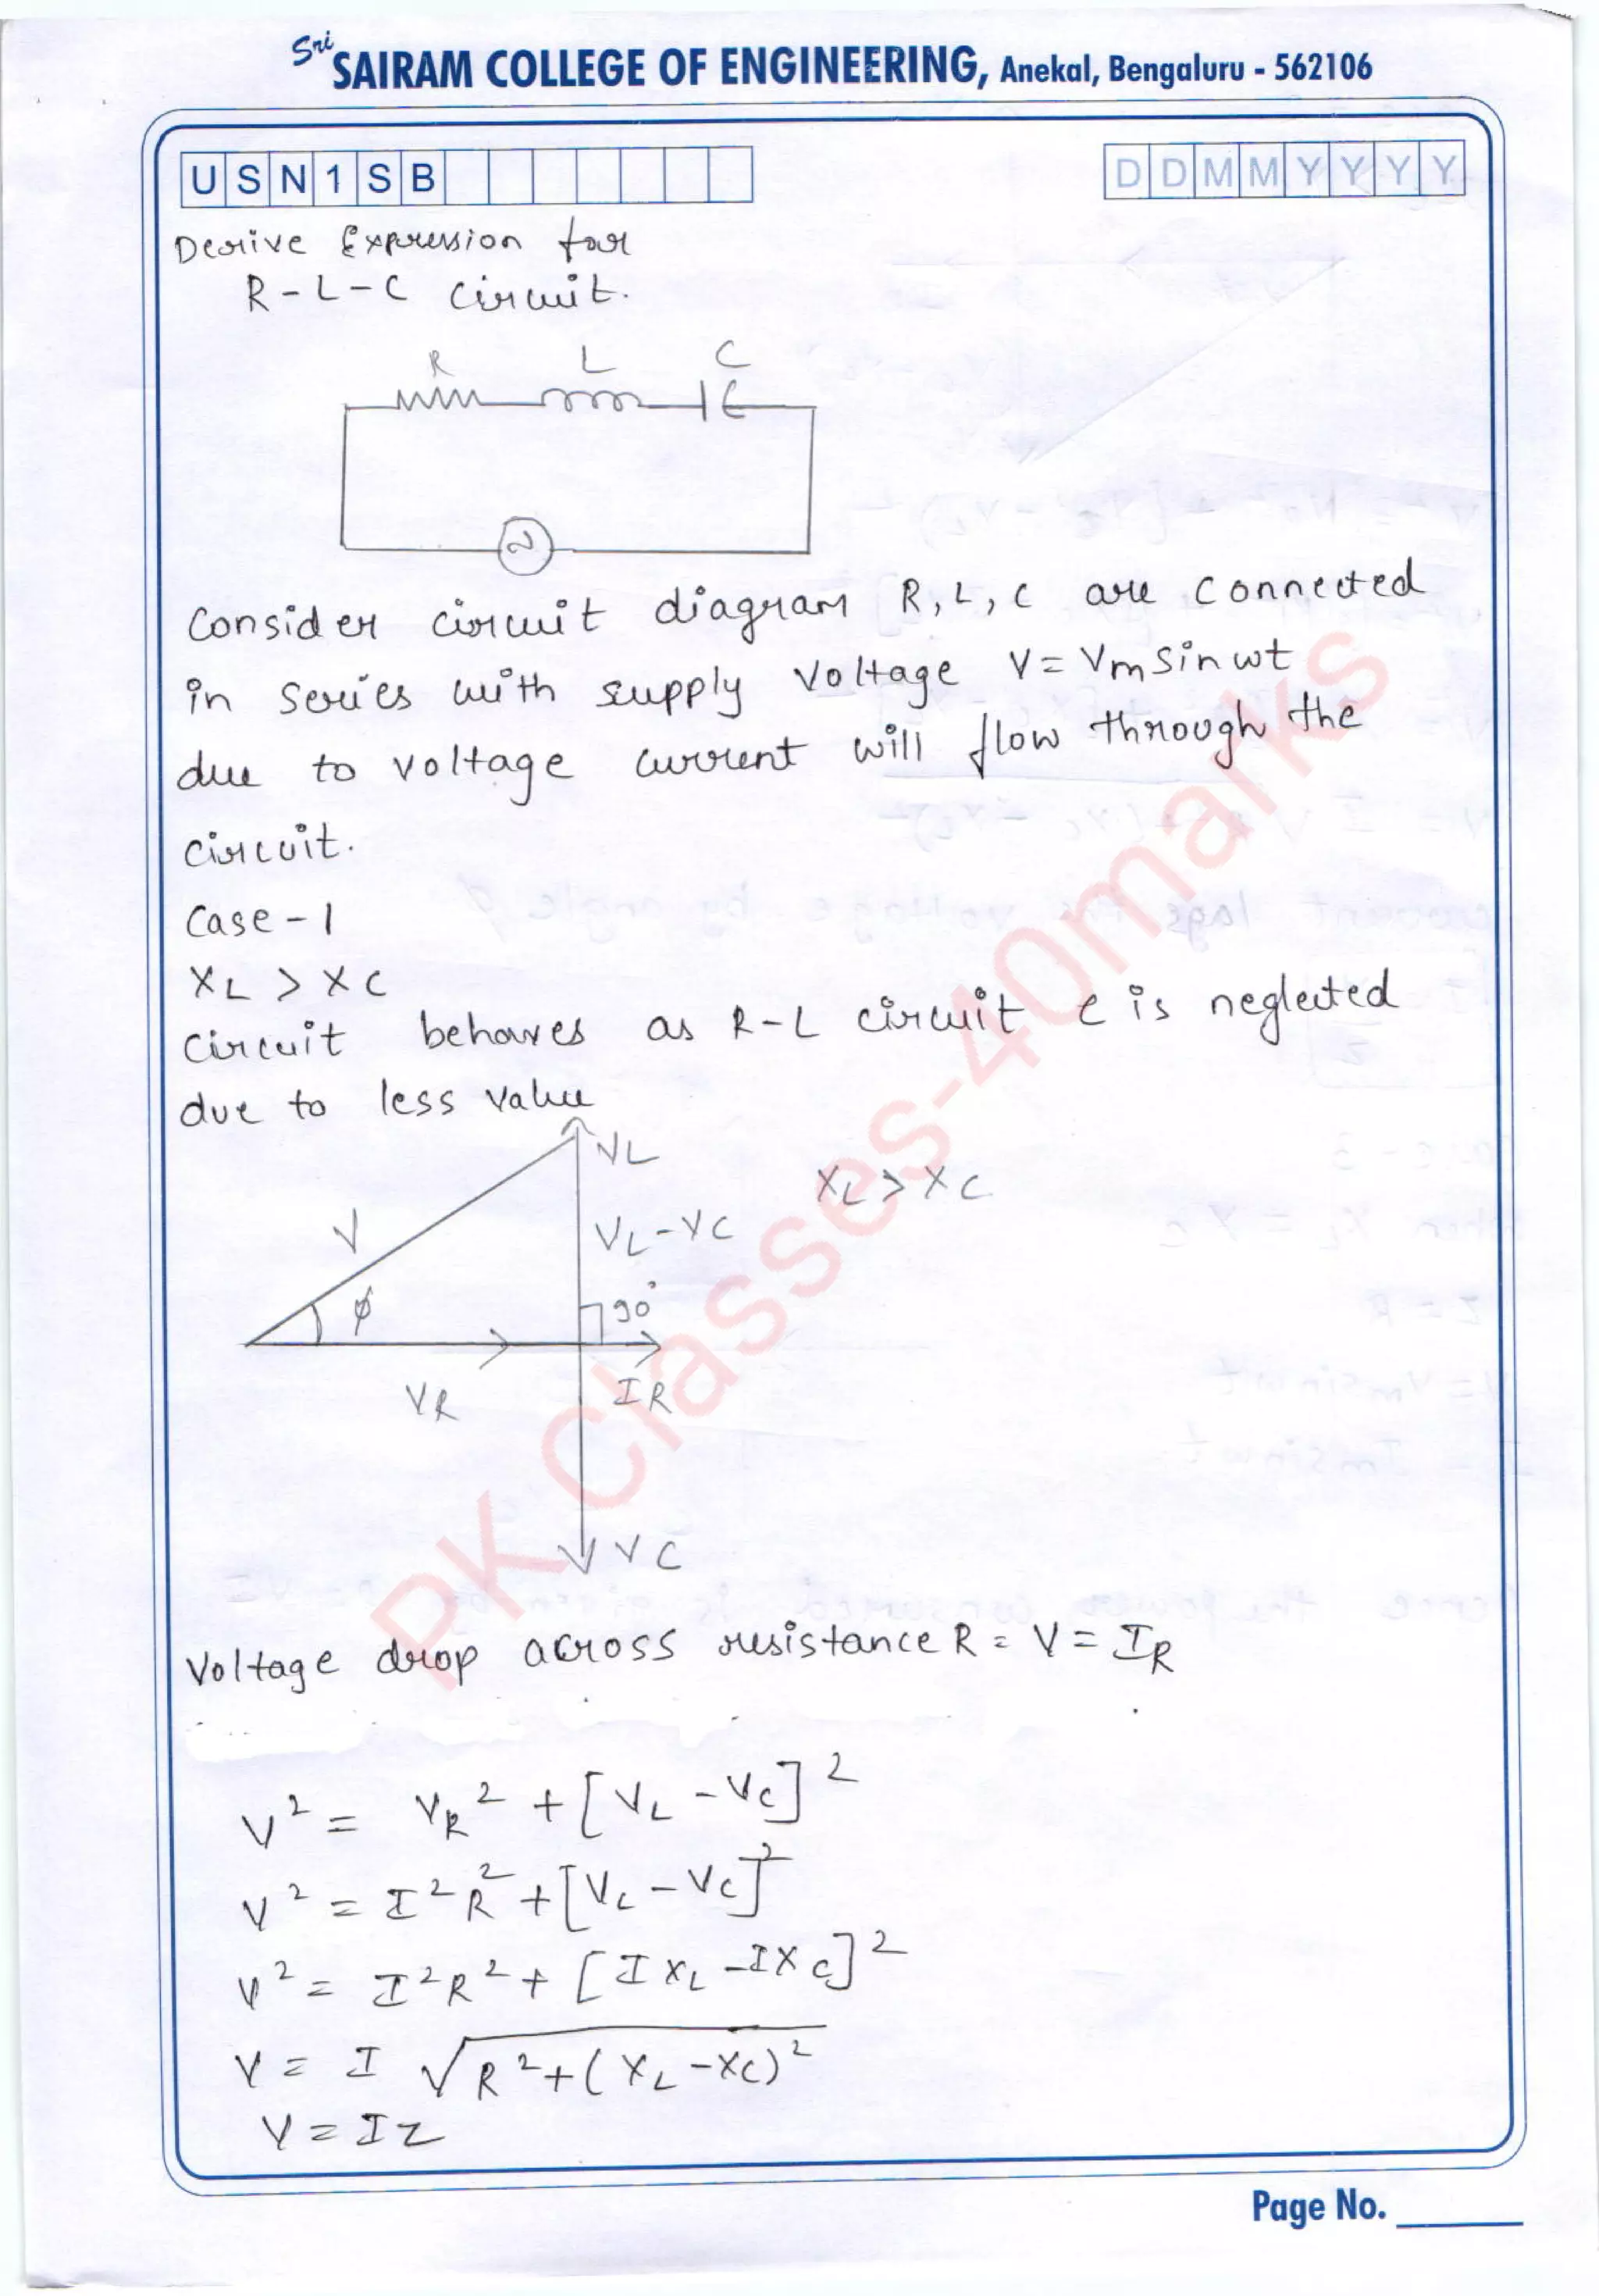 Sri SAIRAM COLLEGE OF ENGINEERING, Anekal, Bengaluru - 562106
U S N 1 S B
D D M M Y Y Y Y
Derive Expression for
R - L - C circuit.
R L C
Consider circuit diagram R, L, C are connected
in series with supply voltage V = Vm sin wt
due to voltage current will flow through the
circuit.
Case - 1
XL > XC
Circuit behaves as R-L circuit C is neglected
due to less value
VL
XL > XC
V
VL - VC
ϕ
90°
VR
IR
VC
Voltage drop across resistance R = V = IR
V² = VR² + [VL - VC]²
V² = I²R² + [VL - VC]²
V² = I²R² + [IXL - IXC]²
V = I √R² + (XL - XC)²
V = IZ
Page No.
PK Classes-40marks